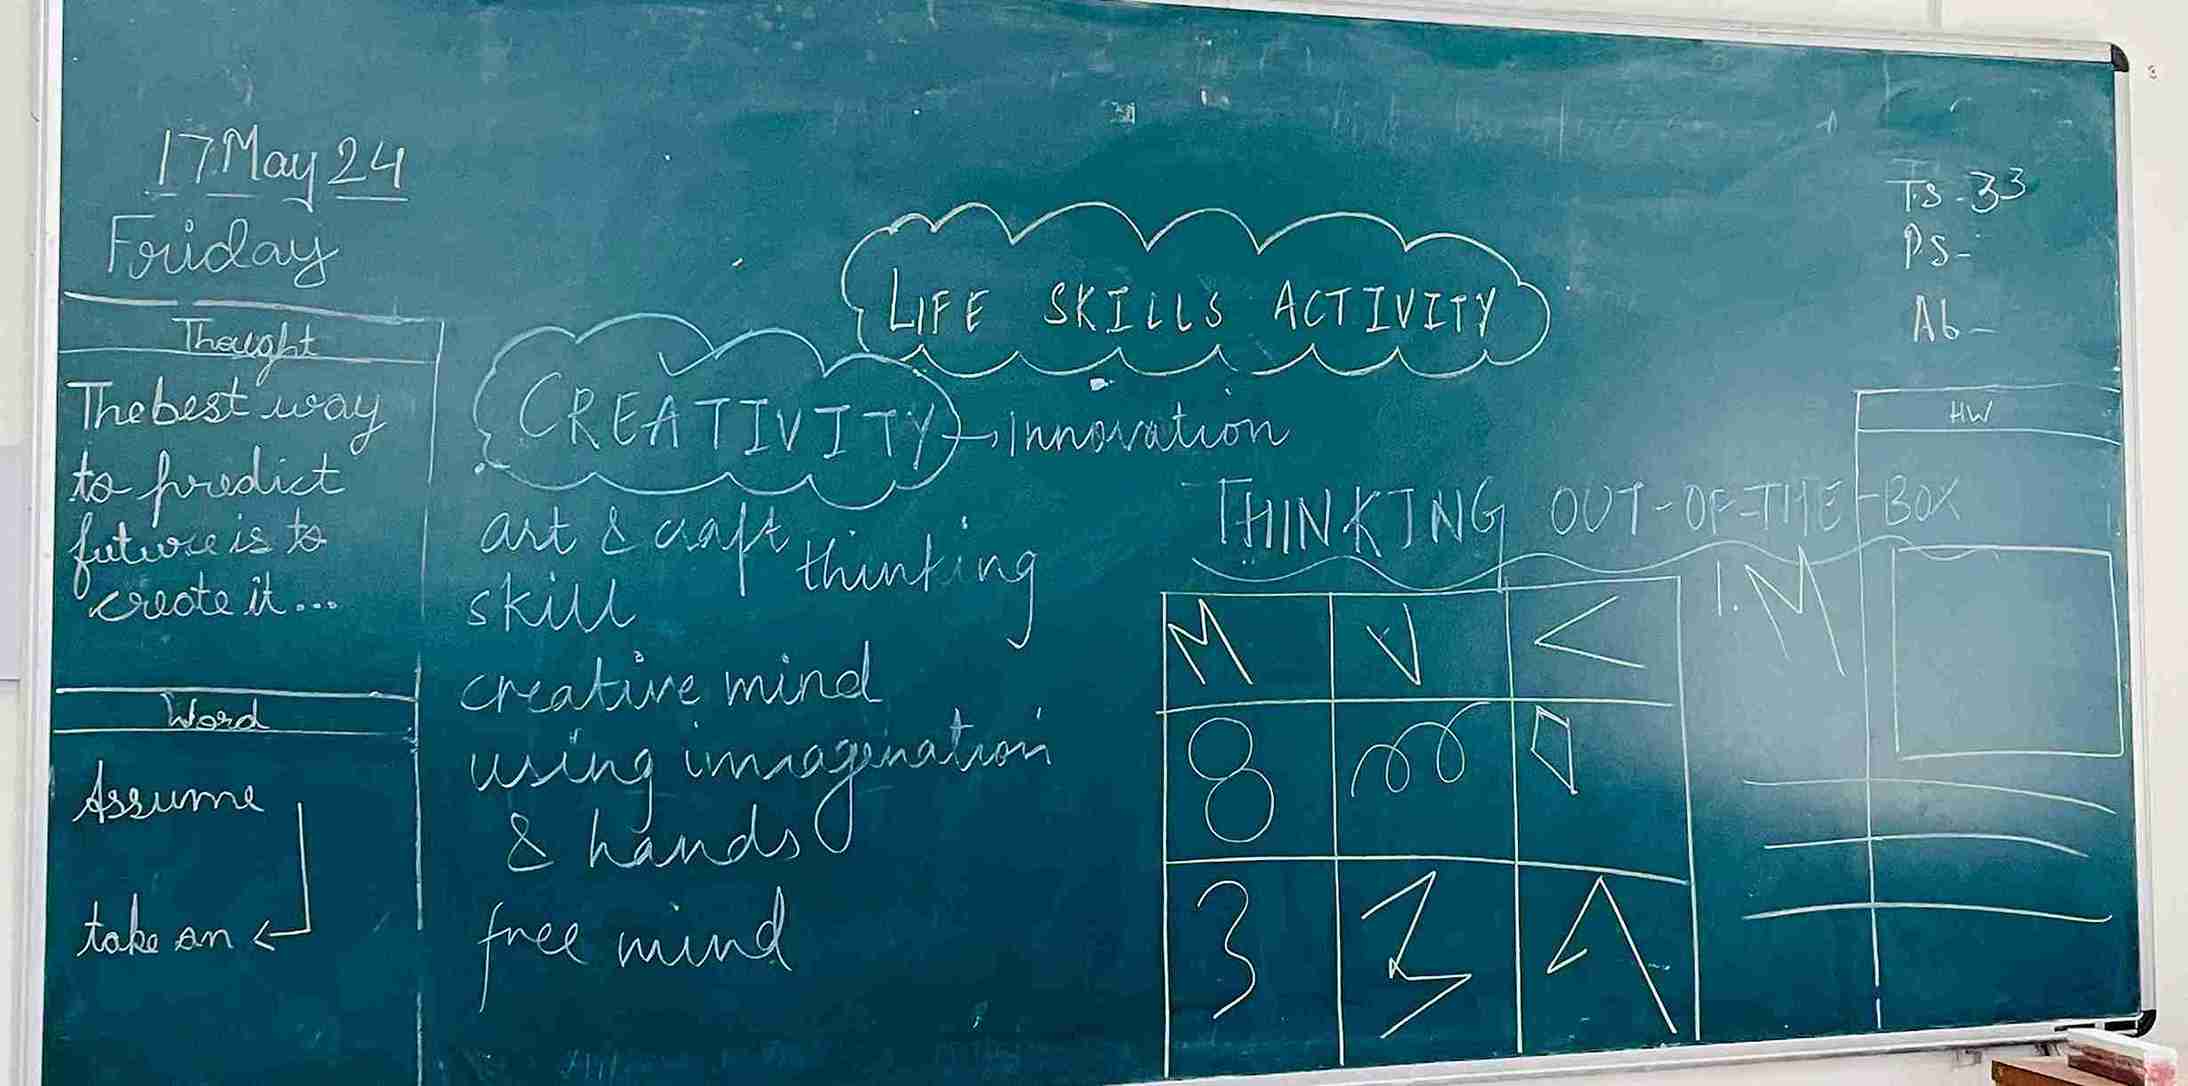 17 May 24
Friday
Thought
The best way
to predict
future is to
create it...
Word
Assume
take on
LIFE SKILLS ACTIVITY
CREATIVITY → Innovation
art & craft
thinking
skill
creative mind
using imagenation
& hands
free mind
THINKING OUT-OF-THE-BOX
M V <
8
3
1. M
T.S - 33
PS -
Ab -
HW